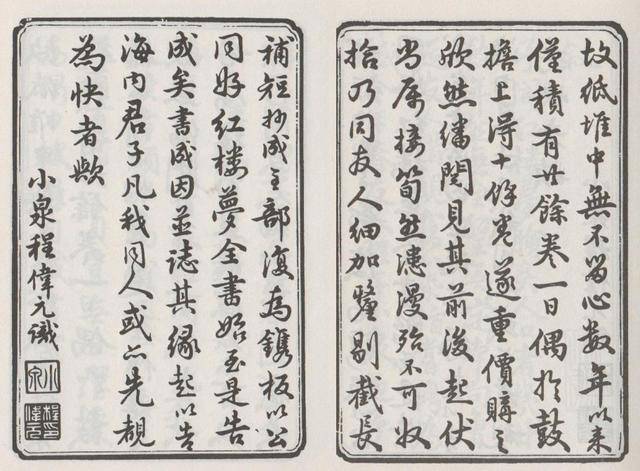 故紙堆中無不留心數年以来
僅積有廿餘卷一日偶於鼓
擔上得十餘卷遂重價購之
欣然繙閱見其前後起伏
尚属接筍然漶漫殆不可收
拾乃同友人細加釐剔截長
補短抄成全部復為鐫板以公
同好紅樓夢全書始至是告
成矣書成因並誌其緣起以告
海内君子凡我同人或亦先覩
為快者歟
小泉程偉元識
小泉
程偉元印